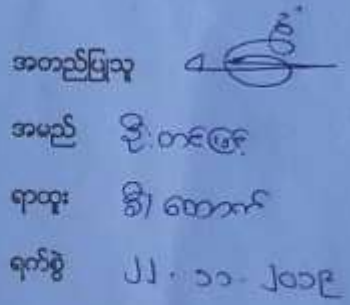 အတည်ပြုသူ
အမည် ဦးတင်မြင့်
ရာထူး ဦး/ထောက်
ရက်စွဲ ၂၂.၁၁.၂၀၁၉